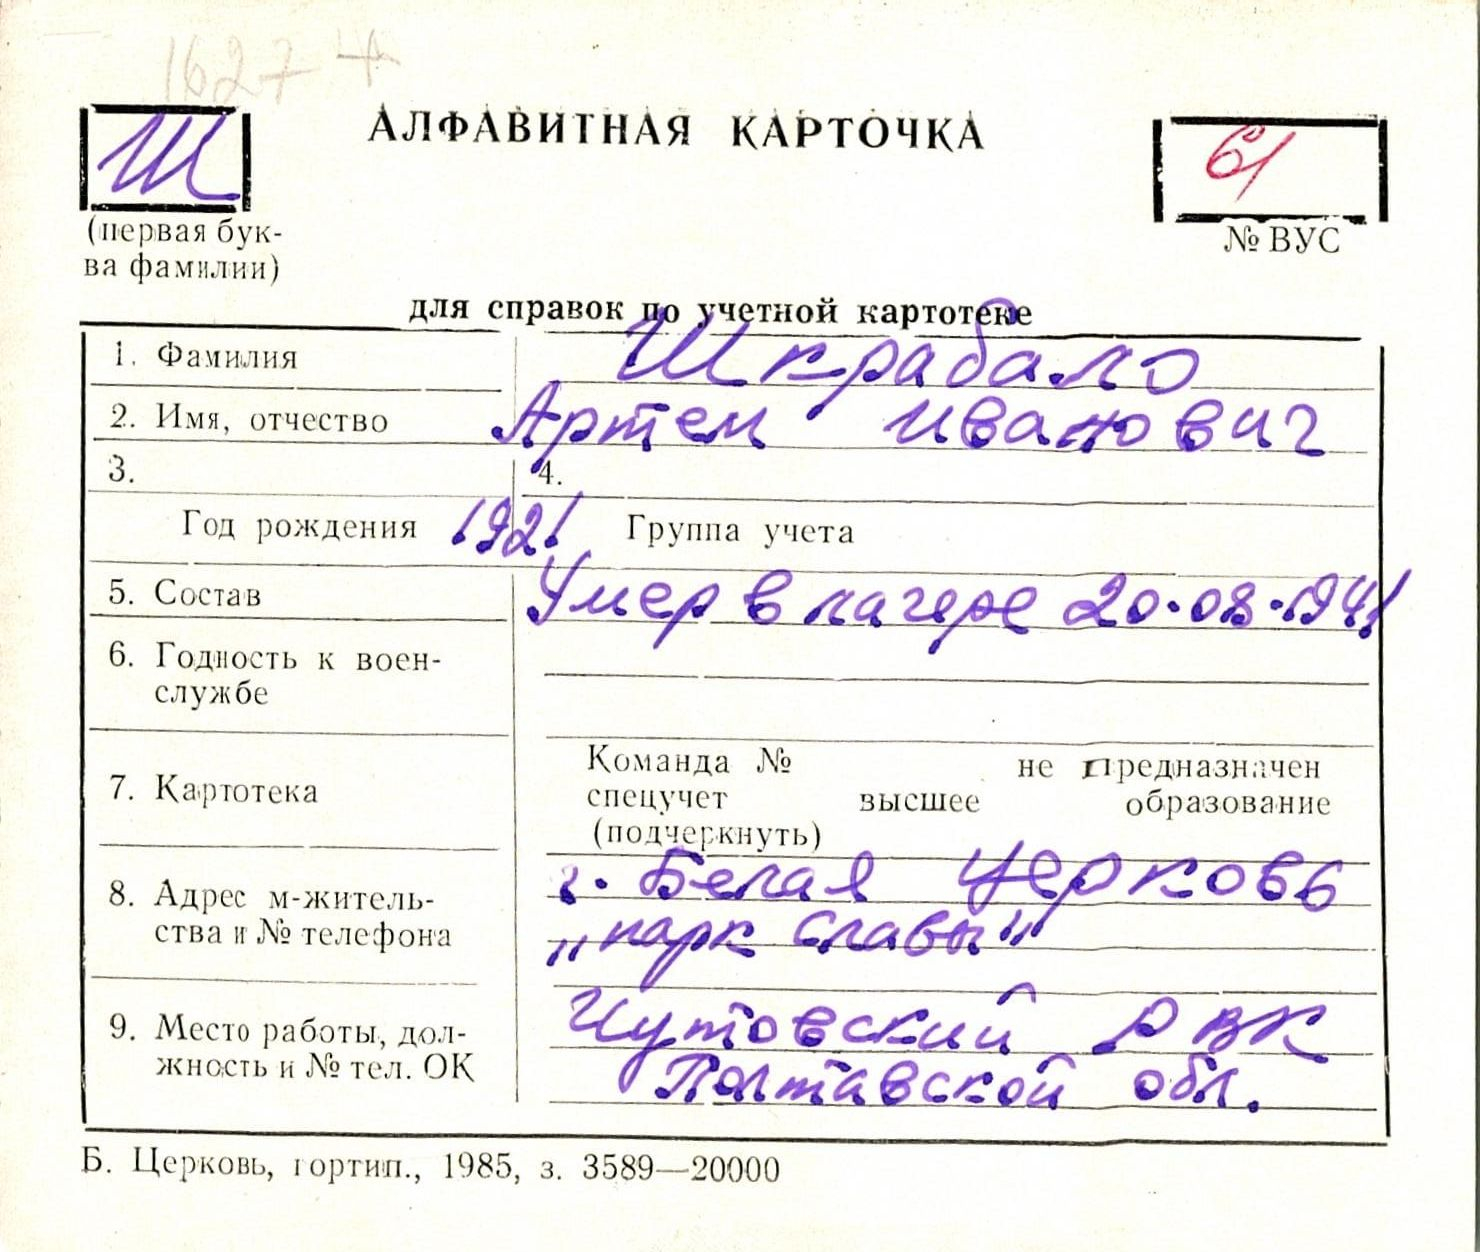 1627
Ш
АЛФАВИТНАЯ КАРТОЧКА
61
(первая бук-
ва фамилии)
№ ВУС
для справок по учетной картотеке
1. Фамилия Шкрабало
2. Имя, отчество Артем Иванович
3. 4.
Год рождения 1921 Группа учета
5. Состав Умер в лагере 20.08.1941
6. Годность к воен-
службе
Команда № не предназначен
7. Картотека спецучет высшее образование
(подчеркнуть)
г. Белая Церковь
8. Адрес м-житель-
ства и № телефона „парк Славы"
9. Место работы, дол- Чутовский РВК
жность и № тел. ОК Полтавской обл.
Б. Церковь, гортип., 1985, з. 3589—20000